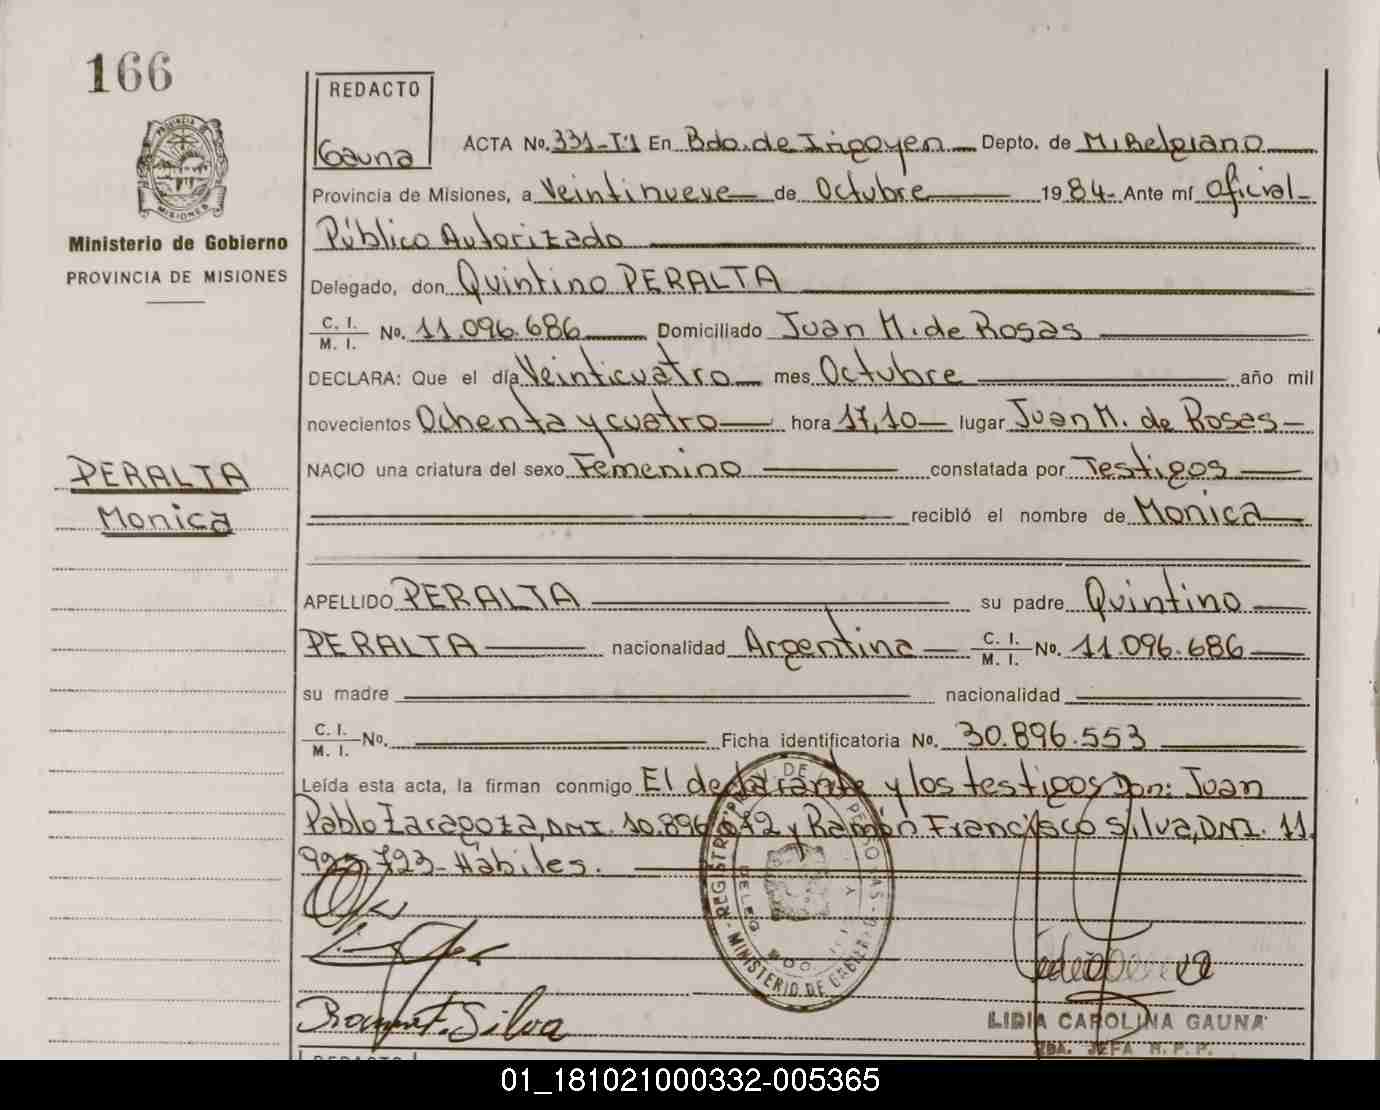 166
REDACTO
Gauna
PROVINCIA DE
MISIONES
Ministerio de Gobierno
PROVINCIA DE MISIONES
ACTA No. 331-T°1 En Bdo. de Irigoyen Depto. de M. Belgrano
Provincia de Misiones, a Veintinueve de Octubre 1984- Ante mí oficial-
Público Autorizado
Delegado, don Quintino PERALTA
C. I.
M. I. No. 11.096.686 Domiciliado Juan M. de Rosas
DECLARA: Que el día Veinticuatro mes Octubre año mil
novecientos Ochenta y cuatro hora 17,10 lugar Juan M. de Rosas-
NACIO una criatura del sexo Femenino constatada por Testigos
recibió el nombre de Monica
PERALTA
Monica
APELLIDO PERALTA su padre Quintino
PERALTA nacionalidad Argentina C. I.
M. I. No. 11.096.686
su madre nacionalidad
C. I.
M. I. No. Ficha identificatoria No. 30.896.553
Leída esta acta, la firman conmigo El declarante y los testigos Don: Juan
Pablo Zaragoza, DNI. 10.896. y Ramón Francisco Silva, DNI. 11.
723- Hábiles.
REGISTRO DE LAS PERSONAS
MINISTERIO DE GOBIERNO
DELEG
F. Silva
LIDIA CAROLINA GAUNA
JEFA R. P. P.
REDACTO
01_181021000332-005365